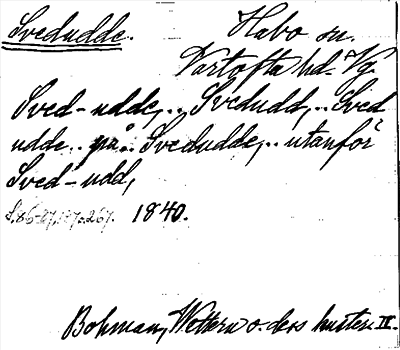 Svedudde.
Habo sn.
Vartofta hd. Vg.
Sved-udde,.. Svedudd,.. Sved
udde.. på.. Svedudde,.. utanför
Sved-udd,
S.86-87, 267. 1840.
Bohman, Wettern o. dess kuster II.